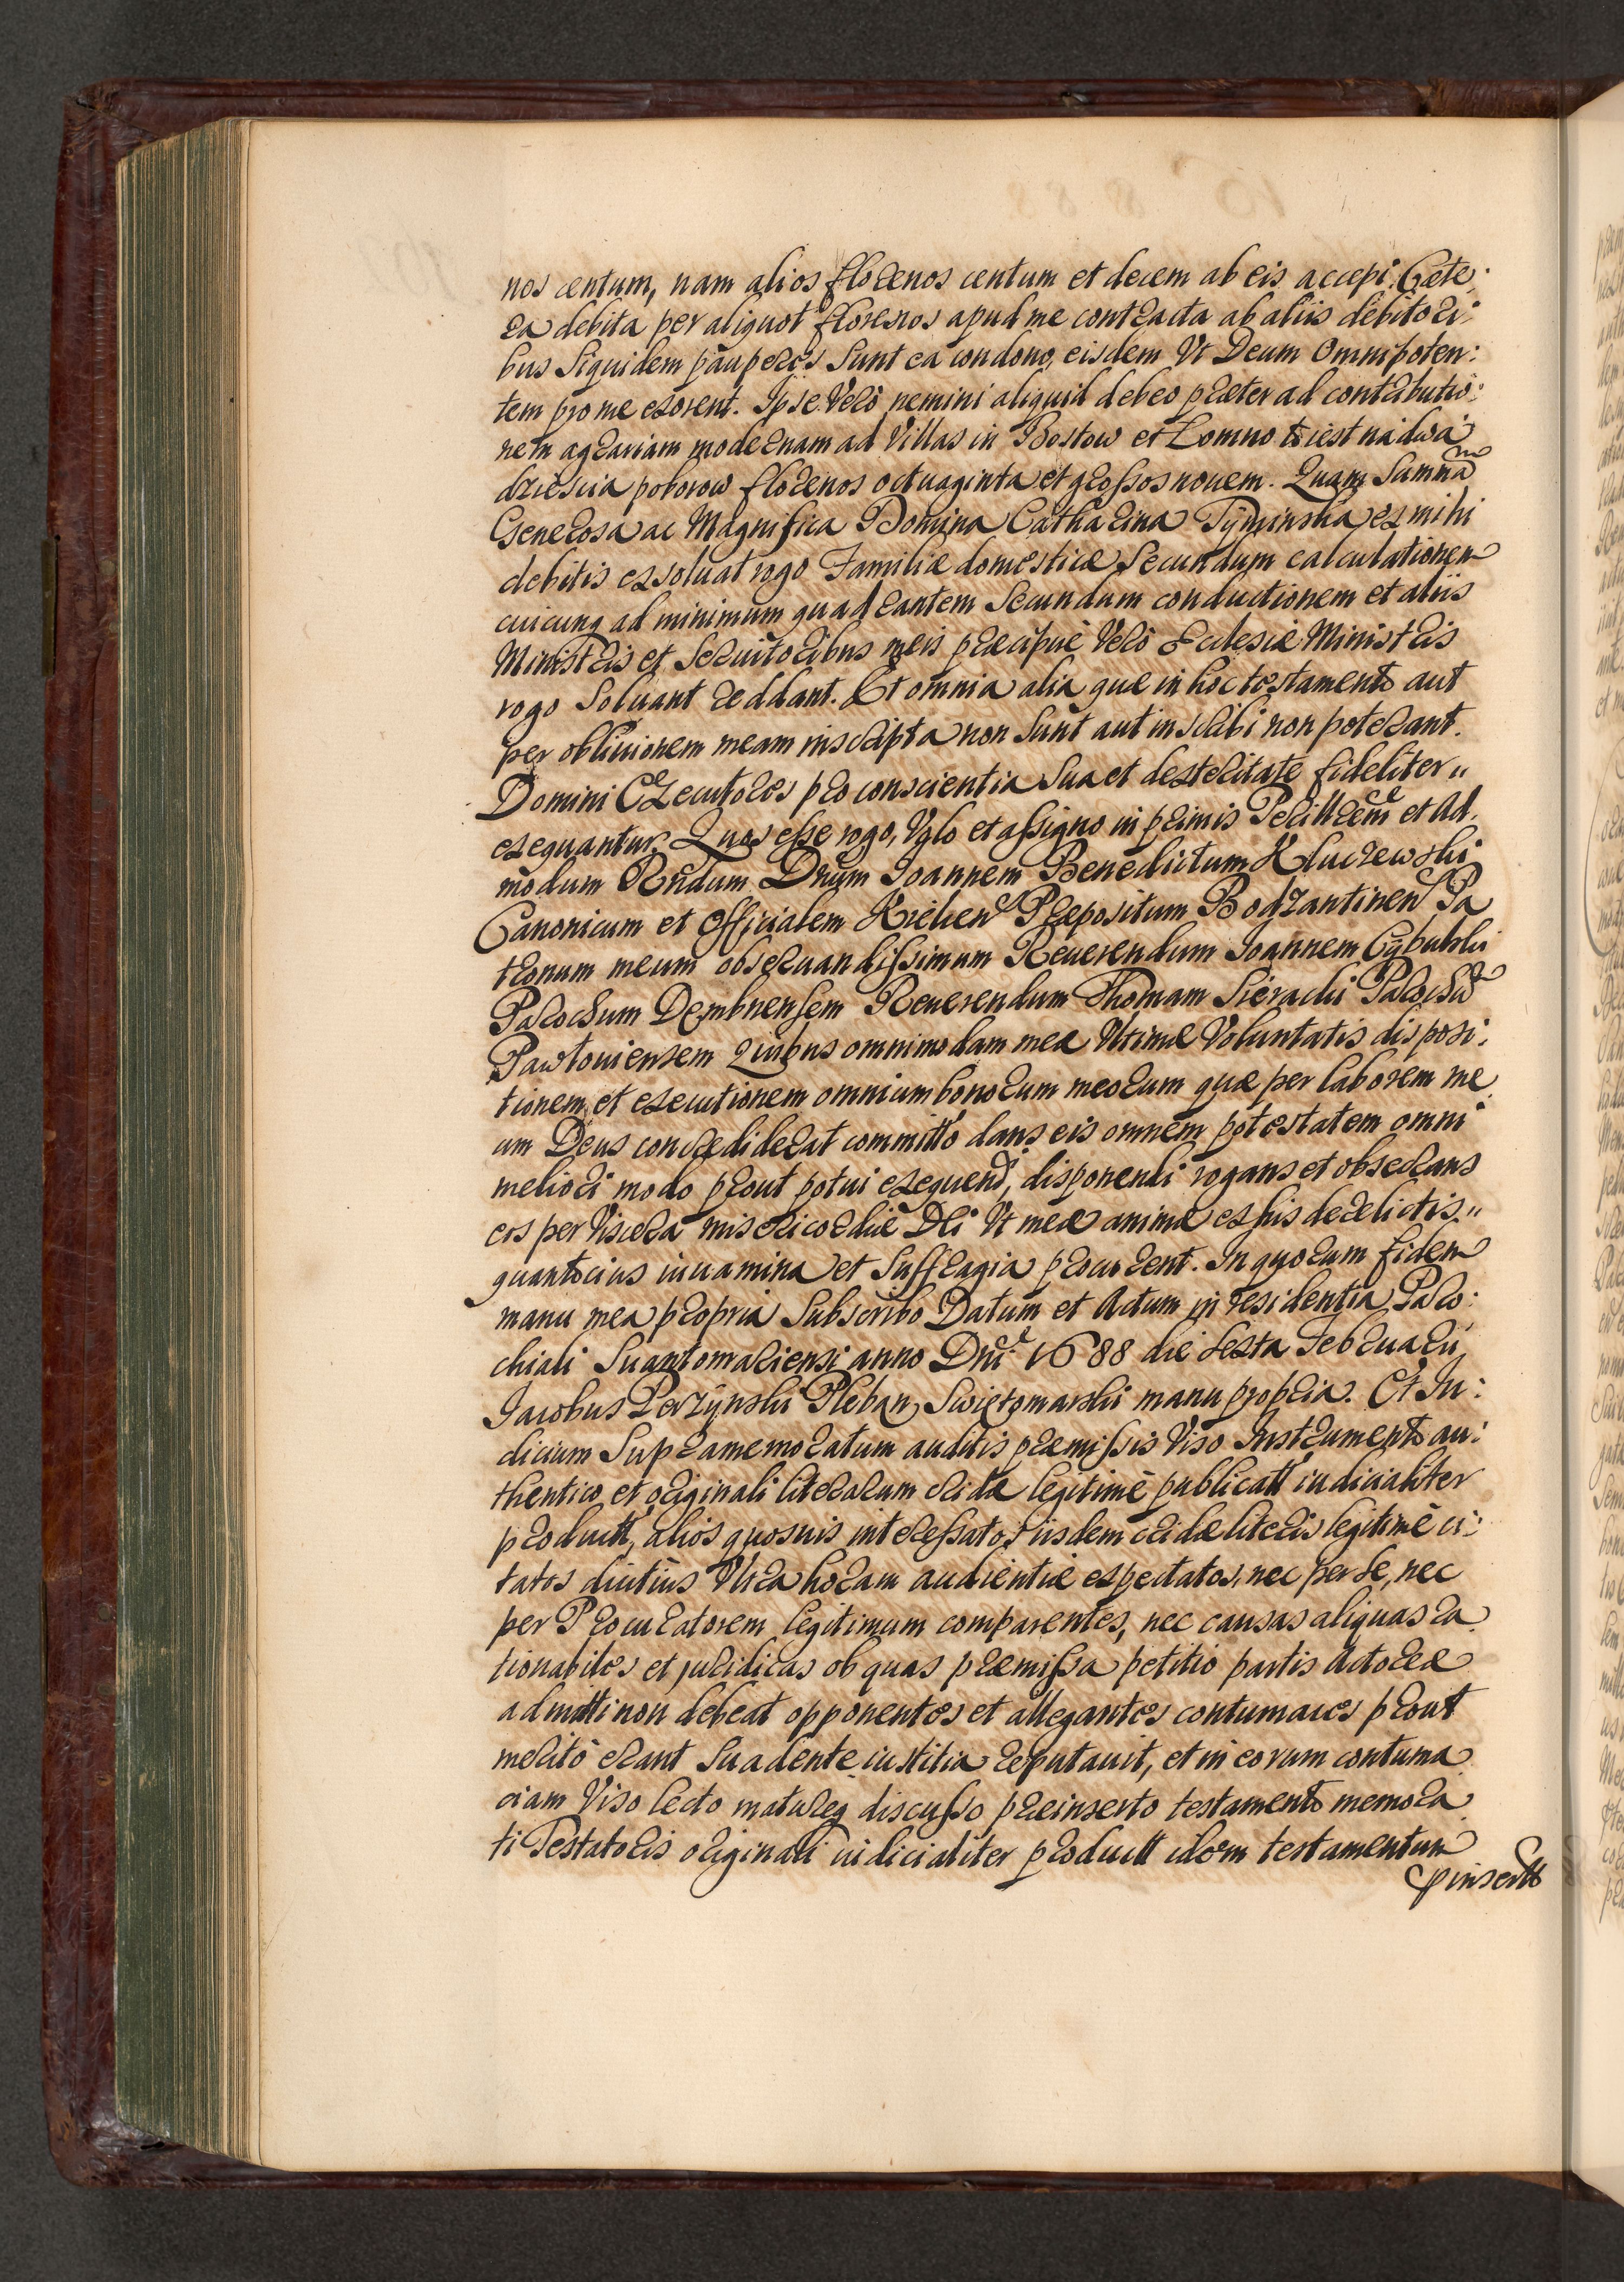 nos centum, nam alios florenos centum et decem ab eis accepi. Cæte:
ra debita per aliquot florenos apud me contracta ab aliis debitori:
bus siquidem pauperes sunt ea condono, eisdem Vt Deum Omnipoten:
tem pro me exorent. Ipse Verò nemini aliquid debeo præter ad contributio:
nem agrariam modernam ad Villas in Bostow et Łomno to iest na dwa
dziescia poborow florenos octuaginta et grossos nouem. Quam Summã
Generosa ac Magnifica Domina Catharina Tyminska ex mihi
debitis exsoluat rogo Familiæ domesticæ Secundum calculationem
cuicunq ad minimum quadrantem Secundum conductionem et aliis
Ministris et Seruitoribus meis præcipuè Verò Ecclesiæ Ministris
rogo Soluant reddant. Et omnia alia quæ in hoc testamento aut
per obliuionem meam inscripta non Sunt aut inscribi non poterant.
Domini Executores pro conscientia Sua et dexteritate fideliter
exequantur. Quos esse rogo, Volo et assigno in primis Perillrem et Ad.
modum Rndum Dnum Joannem Benedictum Kluczewski
Canonicum et Officialem Kielcen Præpositum Bodzantinen Pa
tronum meum obseruandissimum Reuerendum Joannem Cybulski
Parochum Dembnensem Reuerendum Thomam Sieracki Parochũ
Pawłouiensem Quibus omnimodam meæ Vltimæ Voluntatis disposi:
tionem et executionem omnium bonorum meorum quæ per laborem me
um Deus concrediderat committo dans eis omnem potestatem omni
meliori modo prout potui exequendi, disponendi rogans et obsecrans
eos per Viscera misericordiæ DEi Vt meæ animæ ex his derelictis
quantocius iuuamina et Suffragia procurent. In quorum fidem
manu mea propria Subscribo Datum et Actum in residentia Paro:
chiali Suantomariensi anno Dni 1688 die Sexta Februarii,
Jacobus Perzynski Pleban Swiętomarski manu propria. Et Iu:
dicium Supramemoratum auditis præmissis Viso Instrumento au:
thentico et originali literarum cridæ legitimè publicatt iudicialiter
productt, alios quosuis interessatos iisdem cridæ literis legitimè ci:
tatos diutius Vltra horam audientiæ expectatos, nec per Se, nec
per Procuratorem legitimum comparentes, nec causas aliquas ra
tionabiles et juridicas ob quas præmissa petitio partis Actoreæ
admitti non debeat opponentes et allegantes contumaces prout
meritò erant Suadente iustitia reputauit, et in eorum contuma
ciam Viso lecto matureq discusso præinserto testamento memora
ti Testatoris originali iudicialiter productt idem testamentum
pinsertt